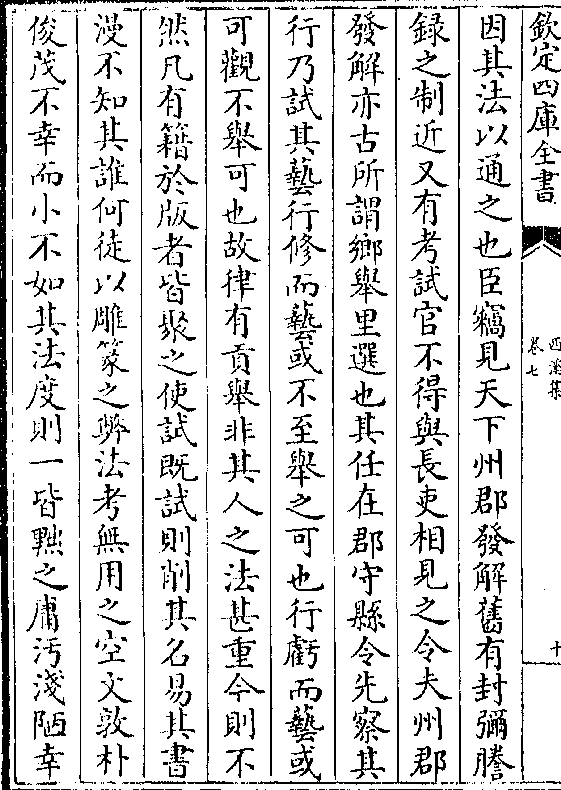 欽定四庫全書
西溪集
卷七
十
因其法以通之也臣竊見天下州郡發解舊有封彌謄
録之制近又有考試官不得與長吏相見之令夫州郡
發解亦古所謂鄉舉里選也其任在郡守縣令先察其
行乃試其藝行修而藝或不至舉之可也行虧而藝或
可觀不舉可也故律有貢舉非其人之法甚重今則不
然凡有籍於版者皆聚之使試既試則削其名易其書
漫不知其誰何徒以雕篆之弊法考無用之空文敦朴
俊茂不幸而小不如其法度則一皆黜之庸汚淺陋幸